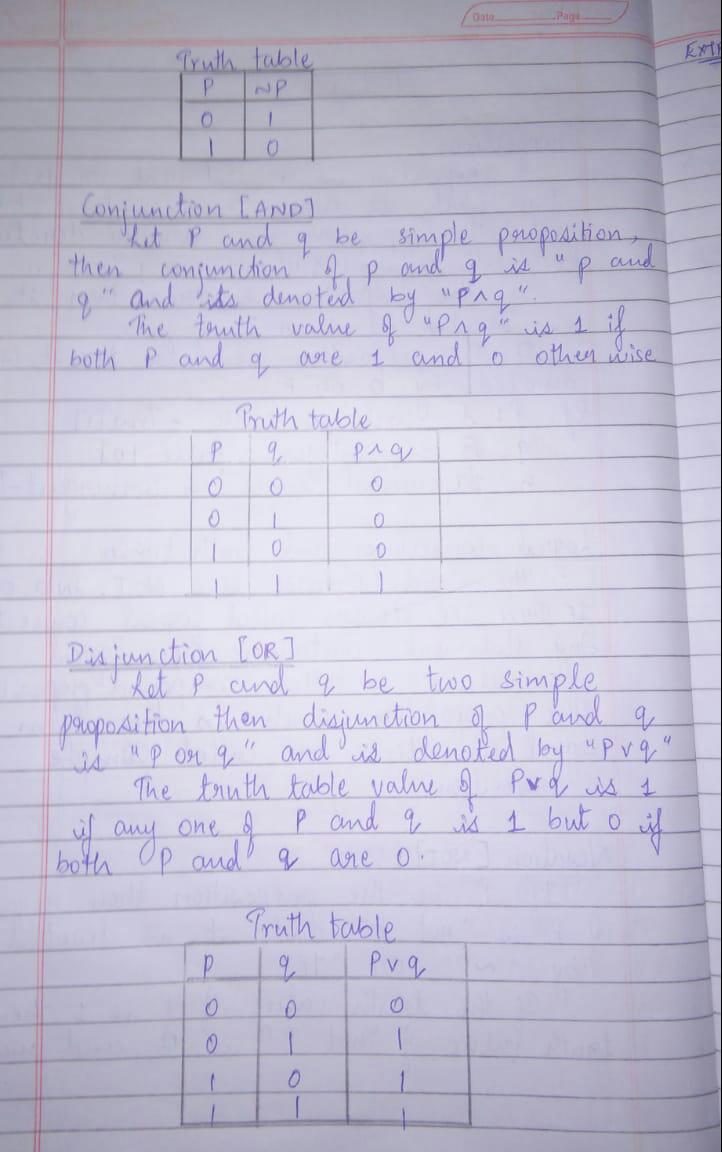 Date Page
Extr
Truth table
P ~P
0 1
1 0
Conjunction [AND]
Let P and q be simple proposition,
then conjunction of p and q is "p and
q" and its denoted by "P∧q".
The truth value of "P∧q" is 1 if
both P and q are 1 and 0 other wise
Truth table
P q P∧q
0 0 0
0 1 0
1 0 0
1 1 1
Disjunction [OR]
Let P and q be two simple
proposition then disjunction of P and q
is "P or q" and is denoted by "P∨q"
The truth table value of P∨q is 1
if any one of P and q is 1 but 0 if
both P and q are 0.
Truth table
P q P∨q
0 0 0
0 1 1
1 0 1
1 1 1